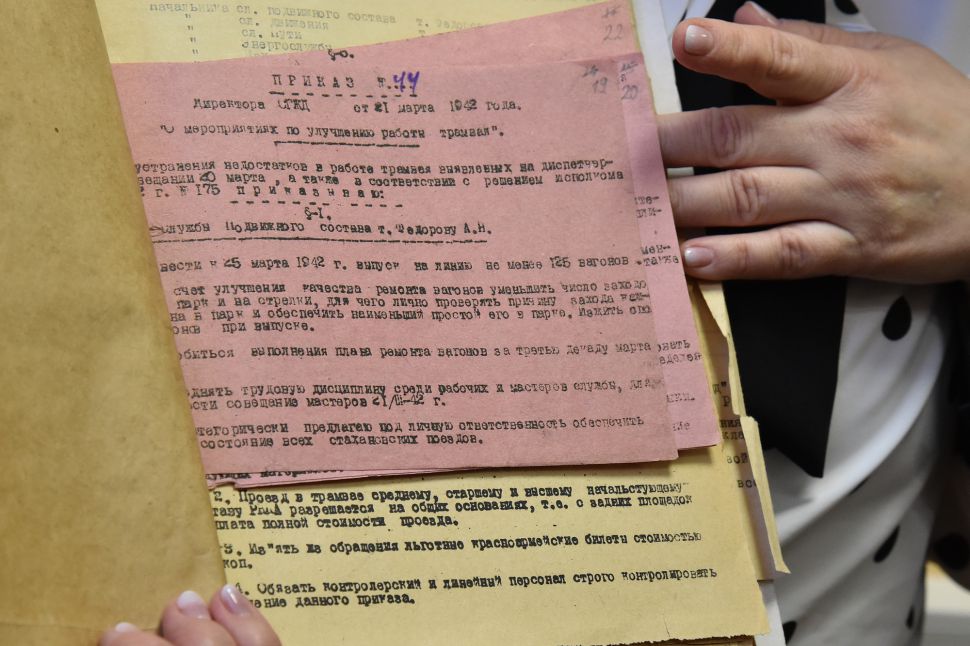 начальника сл. подвижного состава т. Федорову
" сл. движения т.
" сл. пути
" энергослужбы
22
ПРИКАЗ №.44
19
20
Директора от 21 марта 1942 года.
"О мероприятиях по улучшению работы трамвая".
устранения недостатков в работе трамвая выявленных на диспетчер-
вещании 20 марта , а также в соответствии с решением исполкома
г. № 175 приказываю:
§-1.
Службы Подвижного состава т. Федорову А.Н.
вести к 25 марта 1942 г. выпуск на линию не менее 125 вагонов
также
счет улучшения качества ремонта вагонов уменьшить число заходо
парк и на стрелки, для чего лично проверять причину захода
на в парк и обеспечить наименьший простой его в парке. Изжить
онов при выпуске.
обиться выполнения плана ремонта вагонов за третью декаду марта
однять трудовую дисциплину среди рабочих и мастеров службы, для
сти совещание мастеров 21/III-42 г.
тегорически предлагаю под личную ответственность обеспечить
состояние всех стахановских поездов.
2. Проезд в трамвае среднему, старшему и высшему начальствующему
таву РККА разрешается на общих основаниях, т.е. с задних площадок
плата полной стоимости проезда.
3. Из"ять из обращения льготные красноармейские билеты стоимостью
коп.
4. Обязать контролерский и линейный персонал строго контролировать
данного приказа.